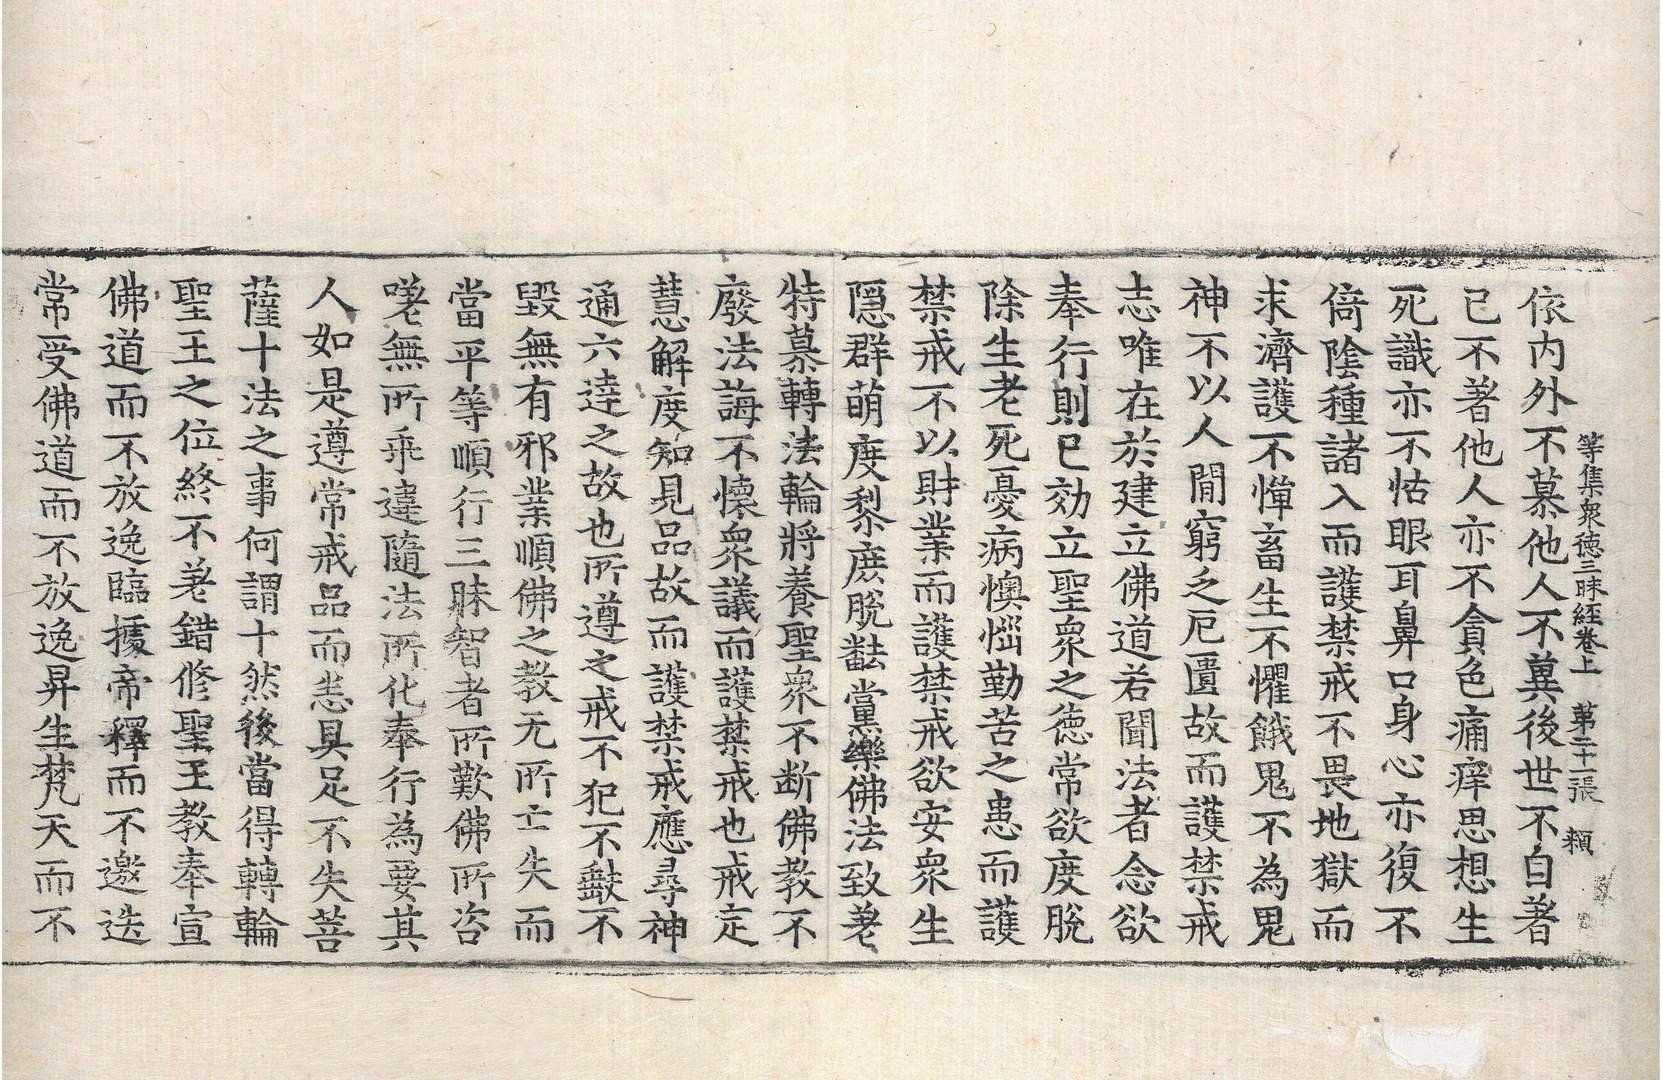 等集衆德三昧經卷上　第二十一張　類
依內外不慕他人不兾後世不自著
已不著他人亦不貪色痛痒思想生
死識亦不怙眼耳鼻口身心亦復不
倚陰種諸入而護禁戒不畏地獄而
求濟護不憚畜生不懼餓鬼不為鬼
神不以人閒窮乏厄匱故而護禁戒
志唯在於建立佛道若聞法者念欲
奉行則已効立聖衆之德常欲度脫
除生老死憂病懊惱勤苦之患而護
禁戒不以財業而護禁戒欲安衆生
隱群萌度黎庶脫㽃黨樂佛法致老
特慕轉法輪將養聖衆不断佛教不
廢法誨不懷衆議而護禁戒也戒定
慧解度知見品故而護禁戒應尋神
通六達之故也所遵之戒不犯不㱿不
毀無有邪業順佛之教无所亡失而
當平等順行三昧智者所歎佛所咨
嗟無所乖違隨法所化奉行為要其
人如是遵常戒品而恙具足不失菩
薩十法之事何謂十然後當得轉輪
聖王之位終不差錯修聖王教奉宣
佛道而不放逸臨據帝釋而不邀迭
常受佛道而不放逸昇生梵天而不